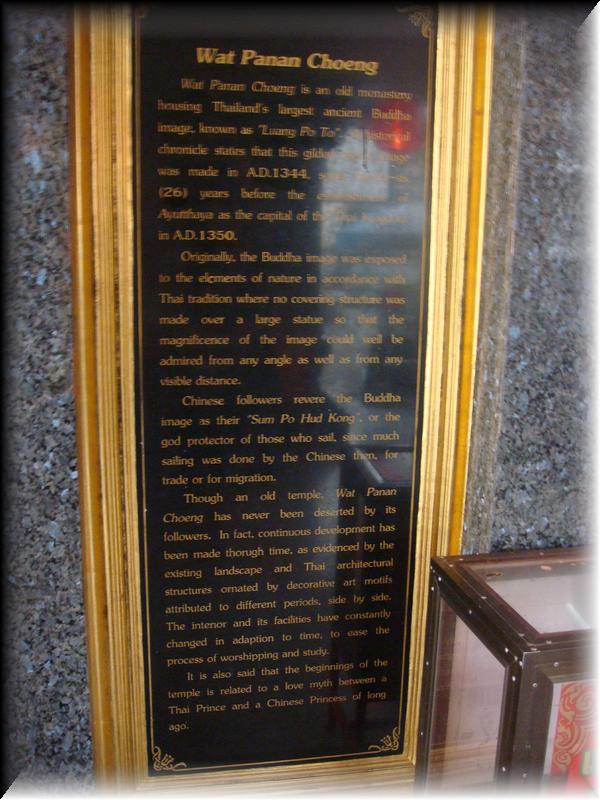 Wat Panan Choeng
Wat Panan Choeng is an old monastery
housing Thailand's largest ancient Buddha
image, known as "Luang Po To". historical
chronicle states that this gilded image
was made in A.D.1344,
(26) years before the establishment of
Ayutthaya as the capital of the Thai Kingdom
in A.D.1350.
Originally, the Buddha image was exposed
to the elements of nature in accordance with
Thai tradition where no covering structure was
made over a large statue so that the
magnificence of the image could well be
admired from any angle as well as from any
visible distance.
Chinese followers revere the Buddha
image as their "Sum Po Hud Kong", or the
god protector of those who sail, since much
sailing was done by the Chinese then, for
trade or for migration.
Though an old temple, Wat Panan
Choeng has never been deserted by its
followers. In fact, continuous development has
been made thorugh time, as evidenced by the
existing landscape and Thai architectural
structures ornated by decorative art motifs
attributed to different periods, side by side.
The interior and its facilities have constantly
changed in adaption to time, to ease the
process of worshipping and study.
It is also said that the beginnings of the
temple is related to a love myth between a
Thai Prince and a Chinese Princess of long
ago.